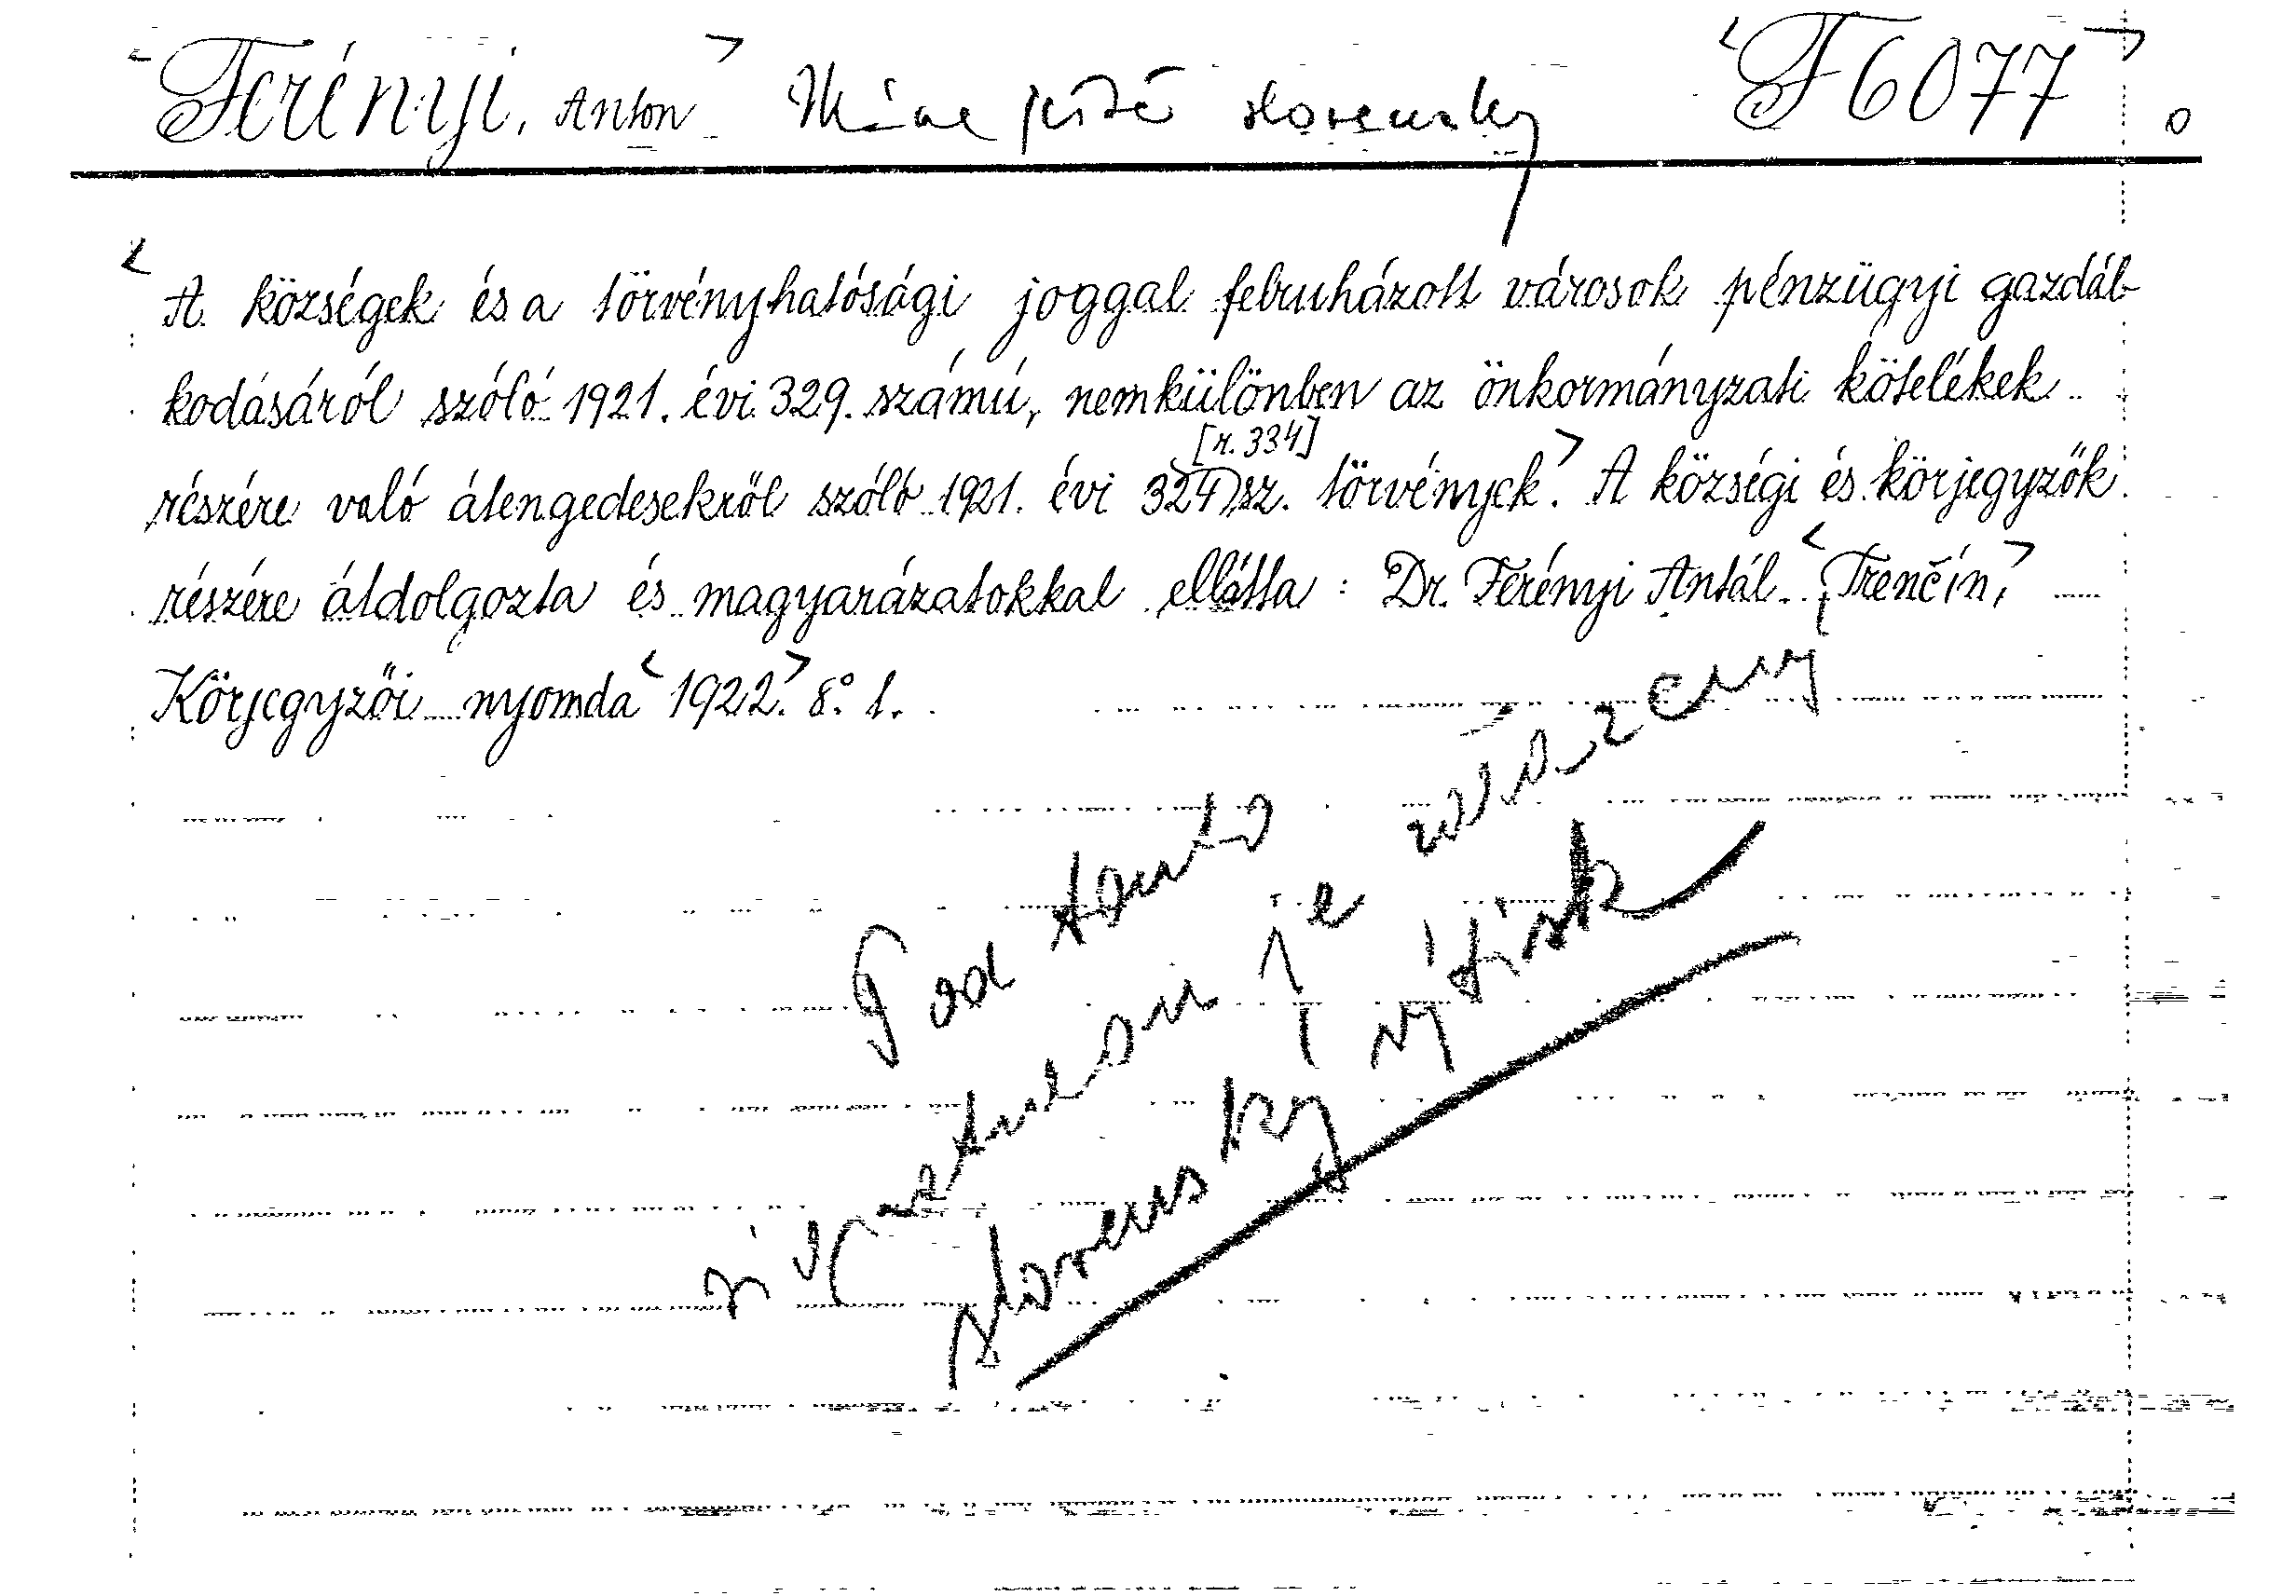 <Ferényi, Anton> Máme ještě slovensky <F 6077>
<A községek és a törvényhatósági joggal felruházott városok pénzügyi gazdál-
kodásáról szóló 1921. évi 329. számú, nemkülönben az önkormányzati kötelékek
[r. 334]
részére való átengedesekről szóló 1921. évi 324 sz. törvények.> A községi és körjegyzők
részére átdolgozta és magyarázatokkal ellátta: Dr. Ferényi Antál. <Trenčín,>
Körjegyzői nyomda <1922.> 8° l.
Pod touto
je uvázený
slovenský výtisk